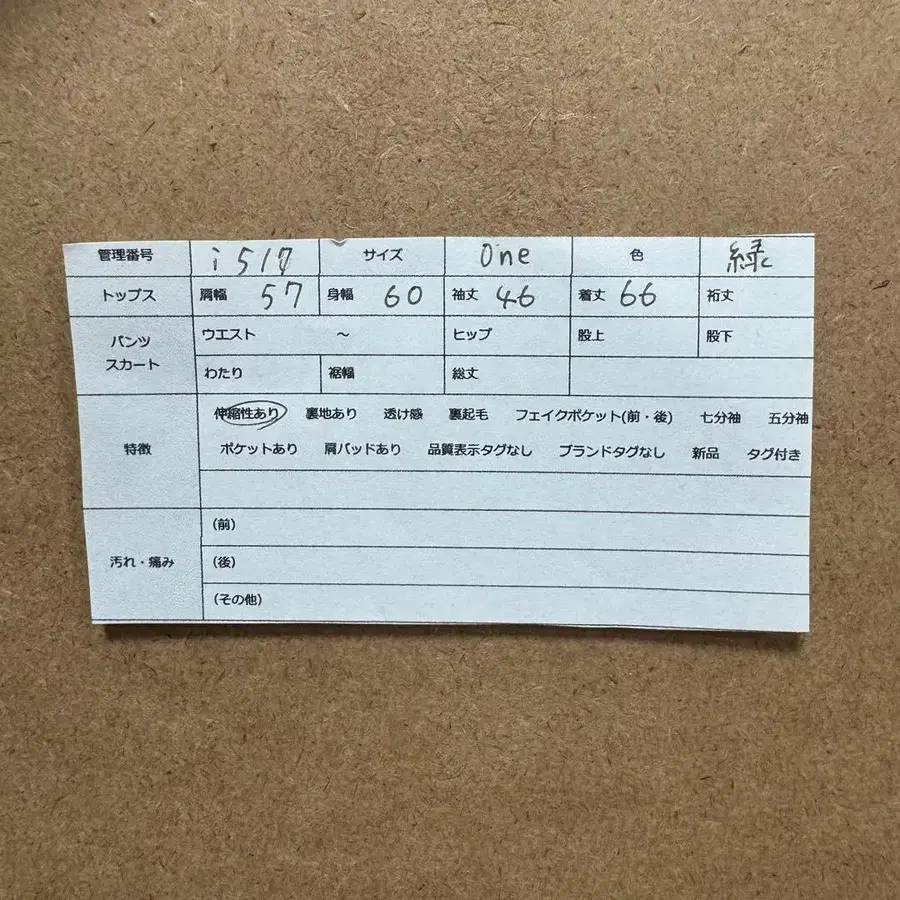 管理番号 i517 サイズ One 色 緑
トップス 肩幅 57 身幅 60 袖丈 46 着丈 66 裄丈
パンツ スカート ウエスト ～ ヒップ 股上 股下
わたり 裾幅 総丈
特徴 伸縮性あり 裏地あり 透け感 裏起毛 フェイクポケット(前・後) 七分袖 五分袖
ポケットあり 肩パッドあり 品質表示タグなし ブランドタグなし 新品 タグ付き
汚れ・痛み (前)
(後)
(その他)